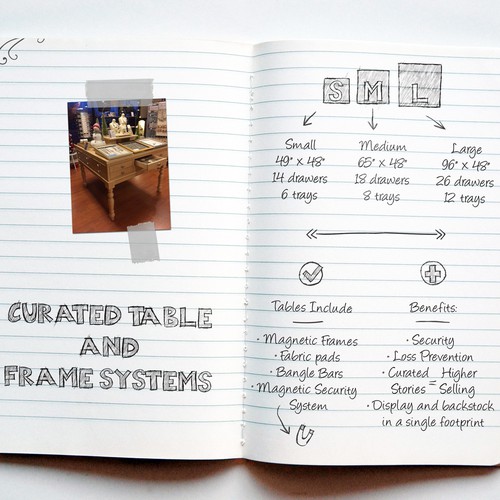 CURATED TABLE
AND
FRAME SYSTEMS
S M L
Small
49" x 48"
14 drawers
6 trays
Medium
65" x 48"
18 drawers
8 trays
Large
96" x 48"
26 drawers
12 trays
Tables Include
• Magnetic Frames
• Fabric pads
• Bangle Bars
• Magnetic Security
System
Benefits:
• Security
• Loss Prevention
• Curated = Higher
Stories Selling
• Display and backstock
in a single footprint